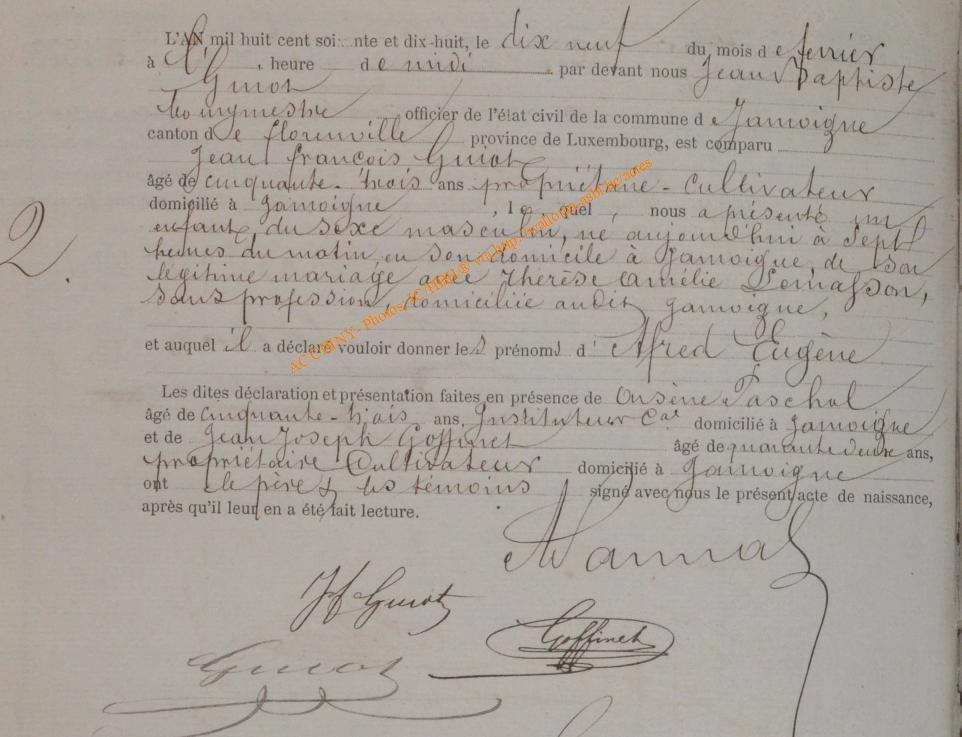 L'AN mil huit cent soi nte et dix-huit, le dix neuf du mois d e fevrier
à l' , heure d e midi par devant nous Jean Baptiste
Guiot
bourgmestre officier de l'état civil de la commune d e Jamoigne
canton d e florenville province de Luxembourg, est comparu
Jean françois Guiot
âgé de cinquante-trois ans propriétaire-cultivateur
domicilié à Jamoigne , le quel , nous a présenté un
enfant du sexe masculin, né aujourd'hui à Sept
heures du matin, en son domicile à Jamoigne, de son
légitime mariage avec Thérèse Amélie Lomasson,
sans profession, domiciliée audit Jamoigne,
et auquel il a déclaré vouloir donner les prénoms d' Alfred Eugène
Les dites déclaration et présentation faites en présence de Paschal
âgé de cinquante-trois ans, Instituteur Cal domicilié à Jamoigne
et de Jean Joseph Goffinet âgé de quarante deux ans,
propriétaire Cultivateur domicilié à Jamoigne
ont le père & les témoins signé avec nous le présent acte de naissance,
après qu'il leur en a été fait lecture.
2.
Jf Guiot
Goffinet
Guiot